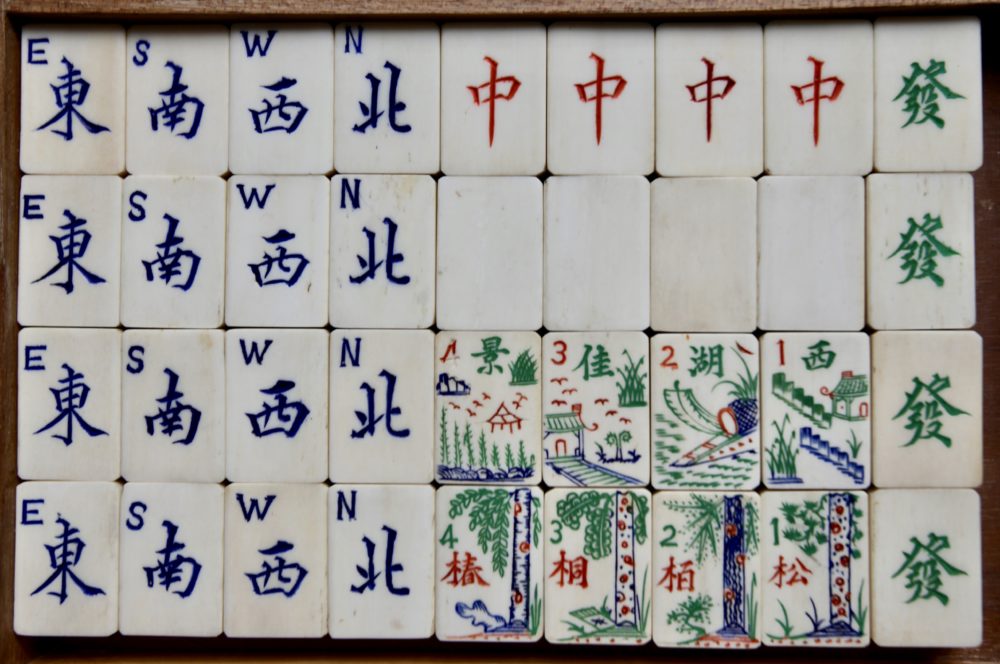 E S W N
東 南 西 北 中 中 中 中 發
E S W N
東 南 西 北 發
E S W N 4 景 3 佳 2 湖 1 西
東 南 西 北 發
E S W N 4 3 2 1
東 南 西 北 椿 桐 栢 松 發